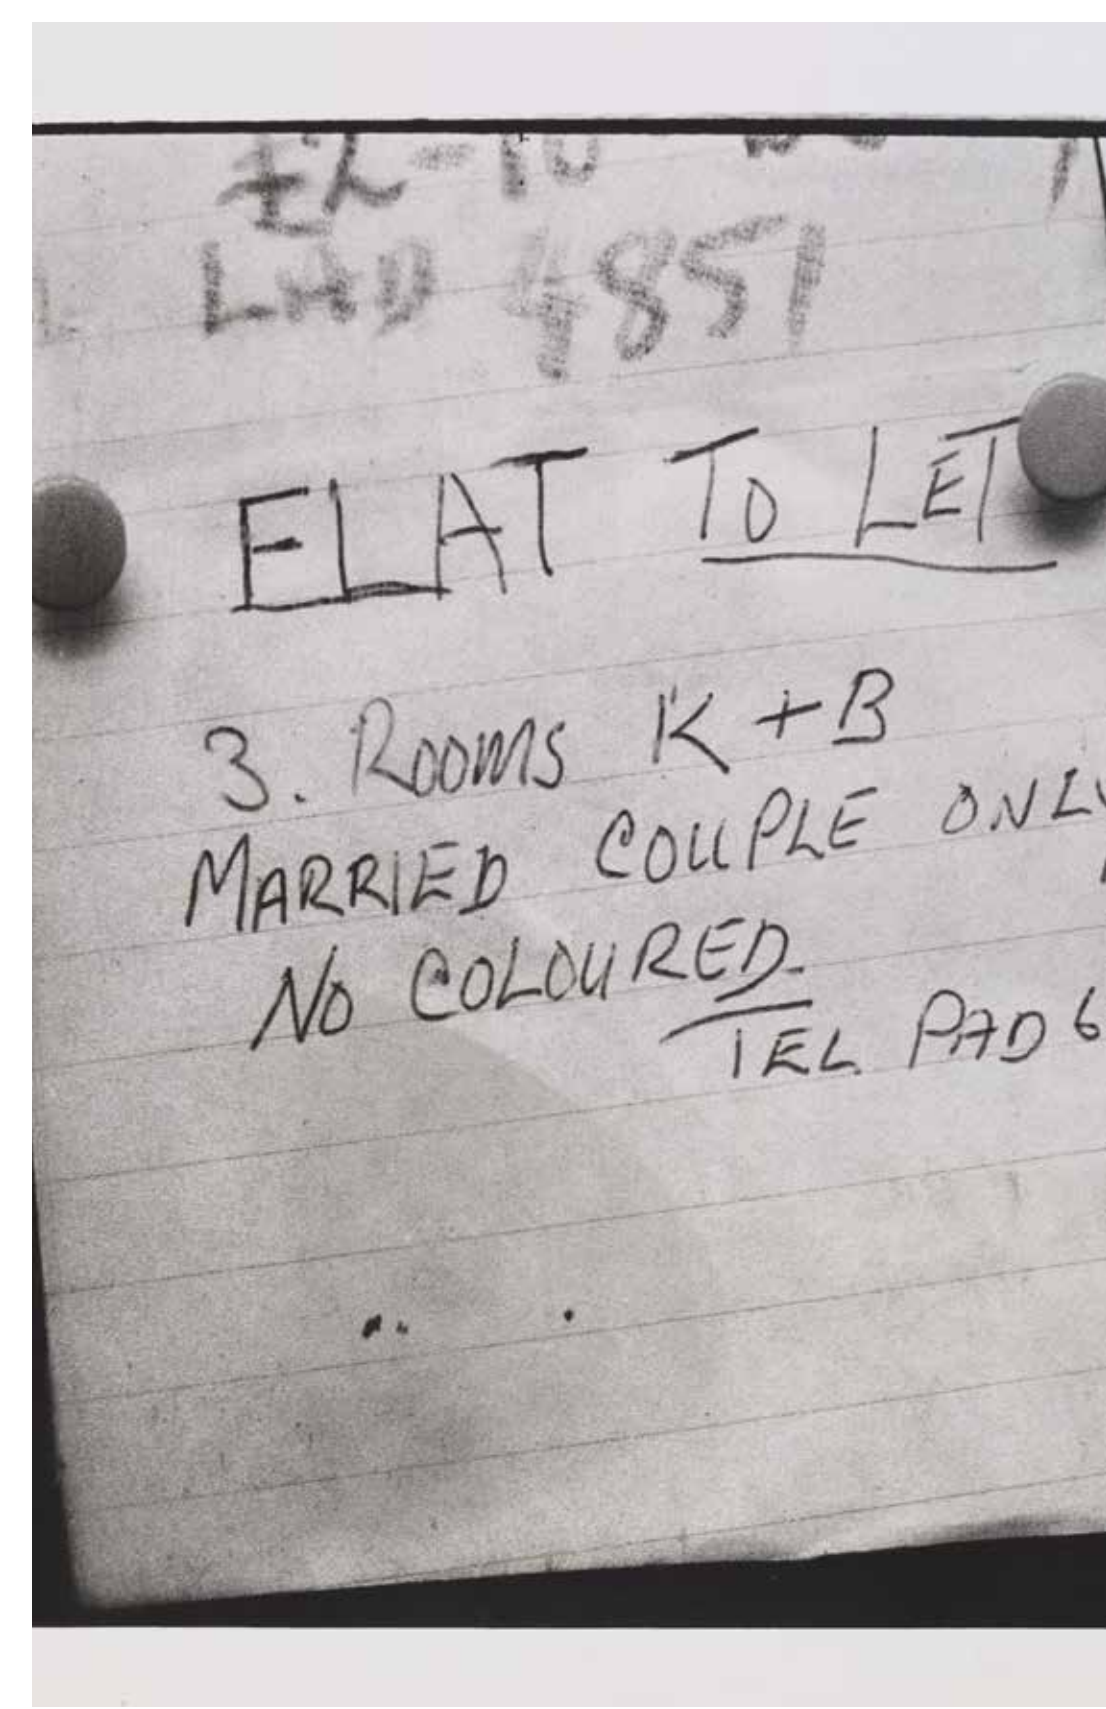 £2-10
LAD 4851
FLAT TO LET
3. ROOMS K + B
MARRIED COUPLE ONLY
NO COLOURED.
TEL. PAD 6